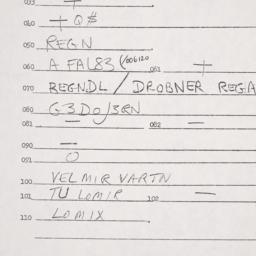 033 +
040 + Q$
050 REGN
060 A FAL83 (/806120 063 +
070 REGNDL / DROBNER REGA
080 G3DO/3RN
081 — 082 —
090 —
091 O
100 VELMIR VARTN
101 TU LOMIR 102 —
110 LOMIX